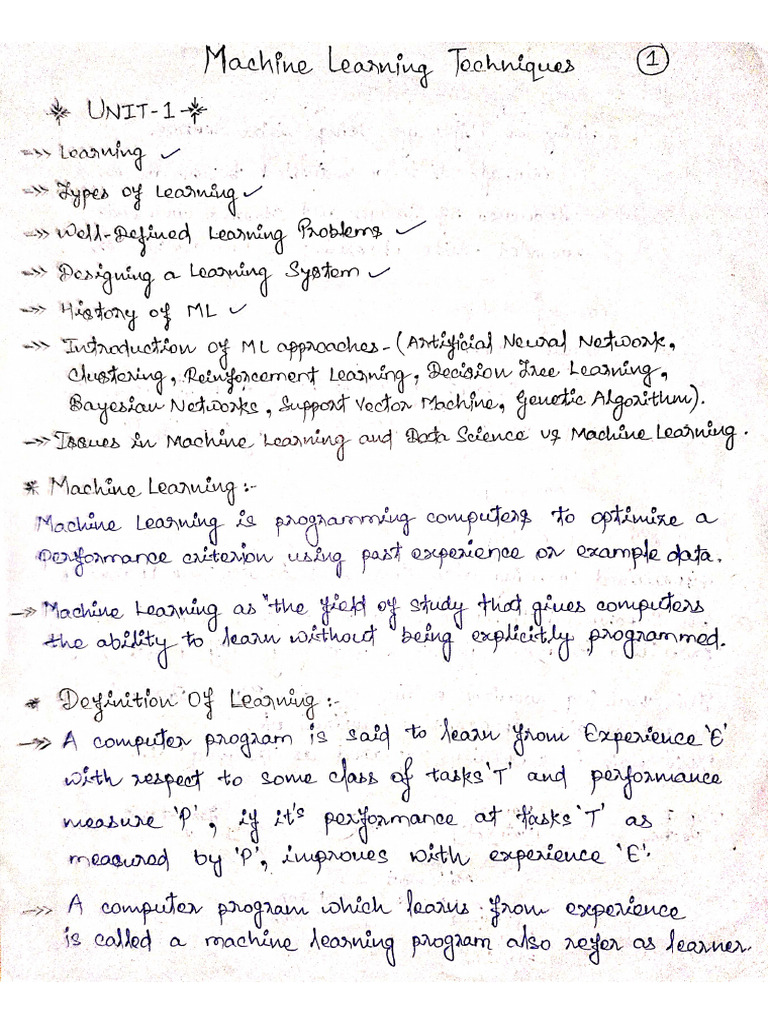 Machine Learning Techniques 1
* UNIT-1 *
->> Learning ✓
->> Types of Learning ✓
->> Well-Defined Learning Problems ✓
->> Designing a Learning System ✓
->> History of ML ✓
->> Introduction of ML approaches - (Artificial Neural Network,
Clustering, Reinforcement Learning, Decision Tree Learning,
Bayesian Networks, Support Vector Machine, Genetic Algorithm).
->> Issues in Machine Learning and Data Science vs Machine Learning.
* Machine Learning :-
Machine Learning is programming computers to optimize a
Performance criterion using past experience or example data.
->> Machine Learning as "the field of study that gives computers
the ability to learn without being explicitly programmed.
* Definition Of Learning :-
->> A computer program is said to learn from Experience 'E'
with respect to some class of tasks 'T' and performance
measure 'P', if it's performance at tasks 'T' as
measured by 'P', improves with experience 'E'.
->> A computer program which learns from experience
is called a machine learning program also refer as learner.